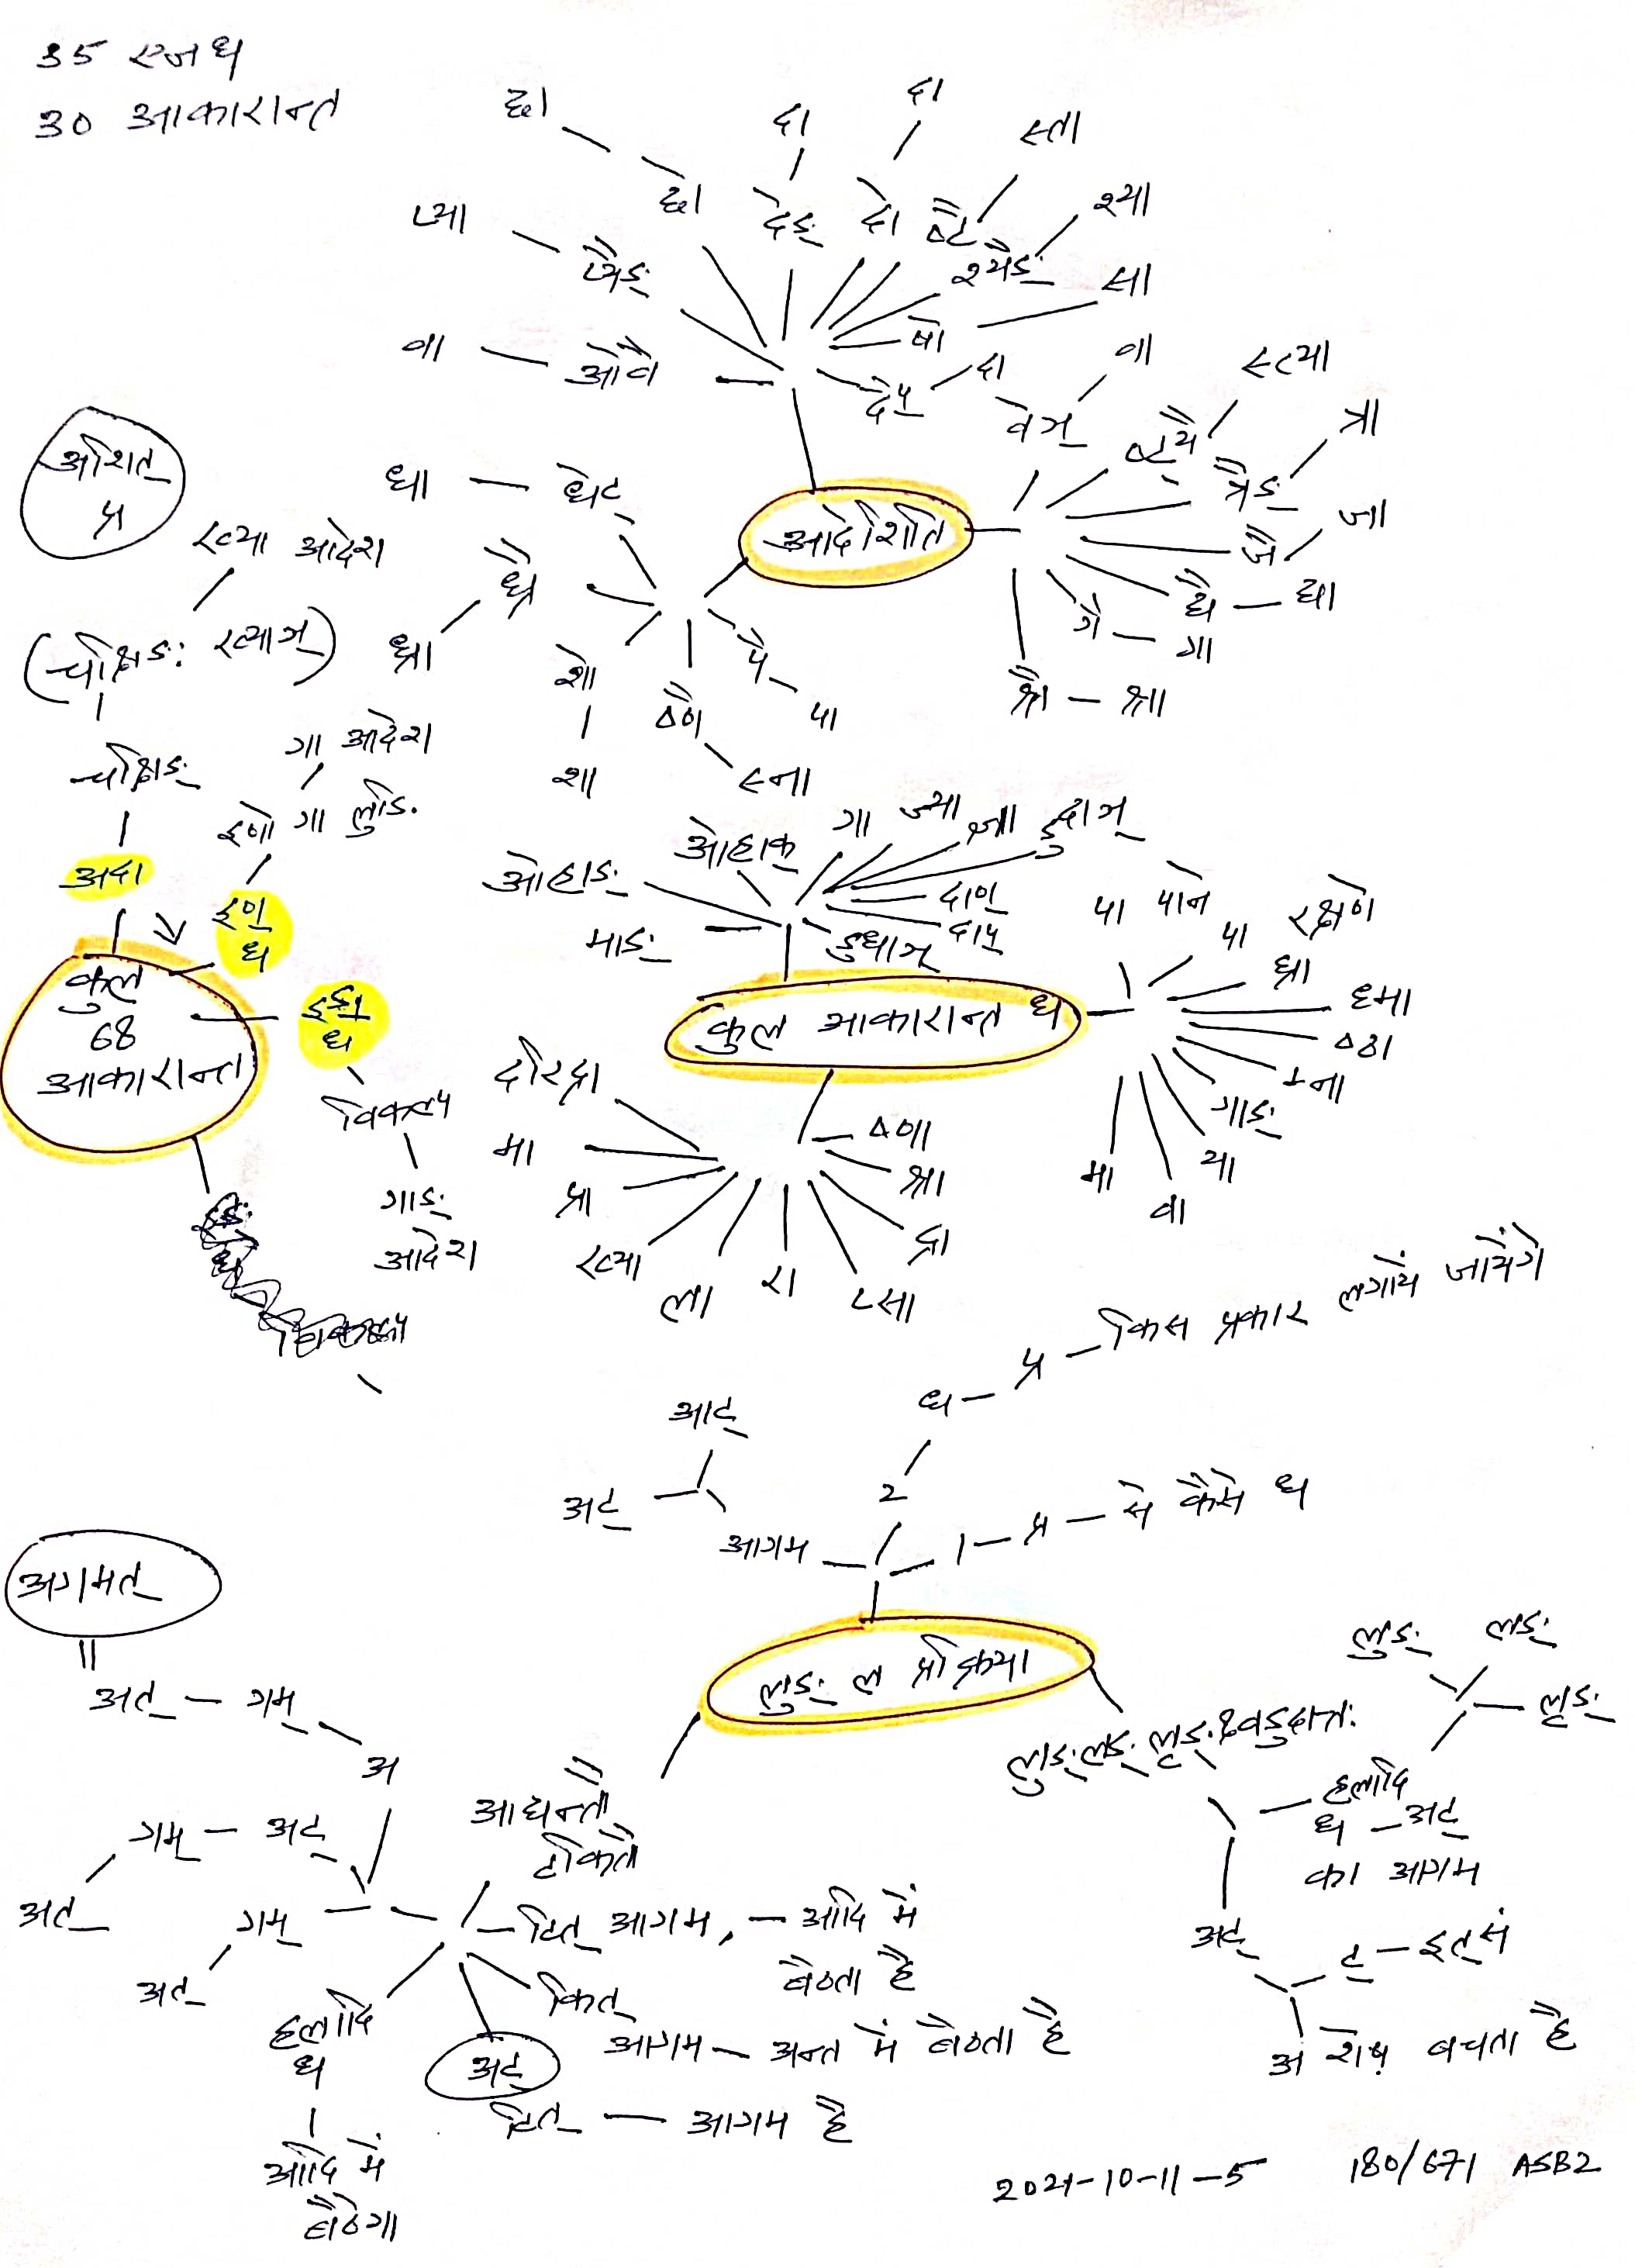 35 एजध
30 आकारान्त
दा
दा
स्ता
श्या
प्या
देङ्
दो
ष्टै
श्यैङ्
सा
प्यैङ्
षो
वा
ओवै
दैप्
दा
वेञ्
वा
स्त्या
ष्ट्यै
त्रा
त्रैङ्
अशित्
प्र
धा
धेट्
आदेशित
जै
जा
ख्या आदेश
ध्रै
ध्रा
ध्यै
ध्या
गै
गा
श्रै
श्रा
(चक्षिङः ख्याञ्)
शो
शा
ष्णै
स्ना
पै
पा
चक्षिङ्
गा आदेश
इणो गा लुङि
अदा
इण्
ध
ओहाङ्
ओहाक्
गा
ज्या
ज्ञा
डुदाञ्
दाण्
दाप्
डुधाञ्
माङ्
पा पाने
पा रक्षणे
घ्रा
ध्मा
ष्ठा
म्ना
गाङ्
या
वा
मा
कुल
68
आकारान्त
इङ्
ध
विकल्प
गाङ्
आदेश
कुल आकारान्त ध
दरिद्रा
मा
प्रा
ख्या
ला
रा
प्सा
द्रा
श्रा
ष्णा
ध – प्र – किस प्रकार लगाये जायेंगे
आट्
अट्
आगम
2
1 – प्र – से कैसे ध
अगमत्
=
अत् – गम् – अ
लुङ् ल प्रक्रिया
लुङ्
लङ्
लृङ्
लुङ्लङ्लृङ्क्ष्वडुदात्तः
हलादि
ध – अट्
का आगम
अट्
ट् – इत्सं
अ शेष बचता है
गम् – अट्
अत्
गम्
अत्
आद्यन्तौ
टकितौ
टित् आगम, – आदि में
बैठता है
कित्
आगम – अन्त में बैठता है
हलादि
ध
आदि में
बैठेगा
अट्
टित् – आगम है
2021-10-11-5 180/671 ASB2